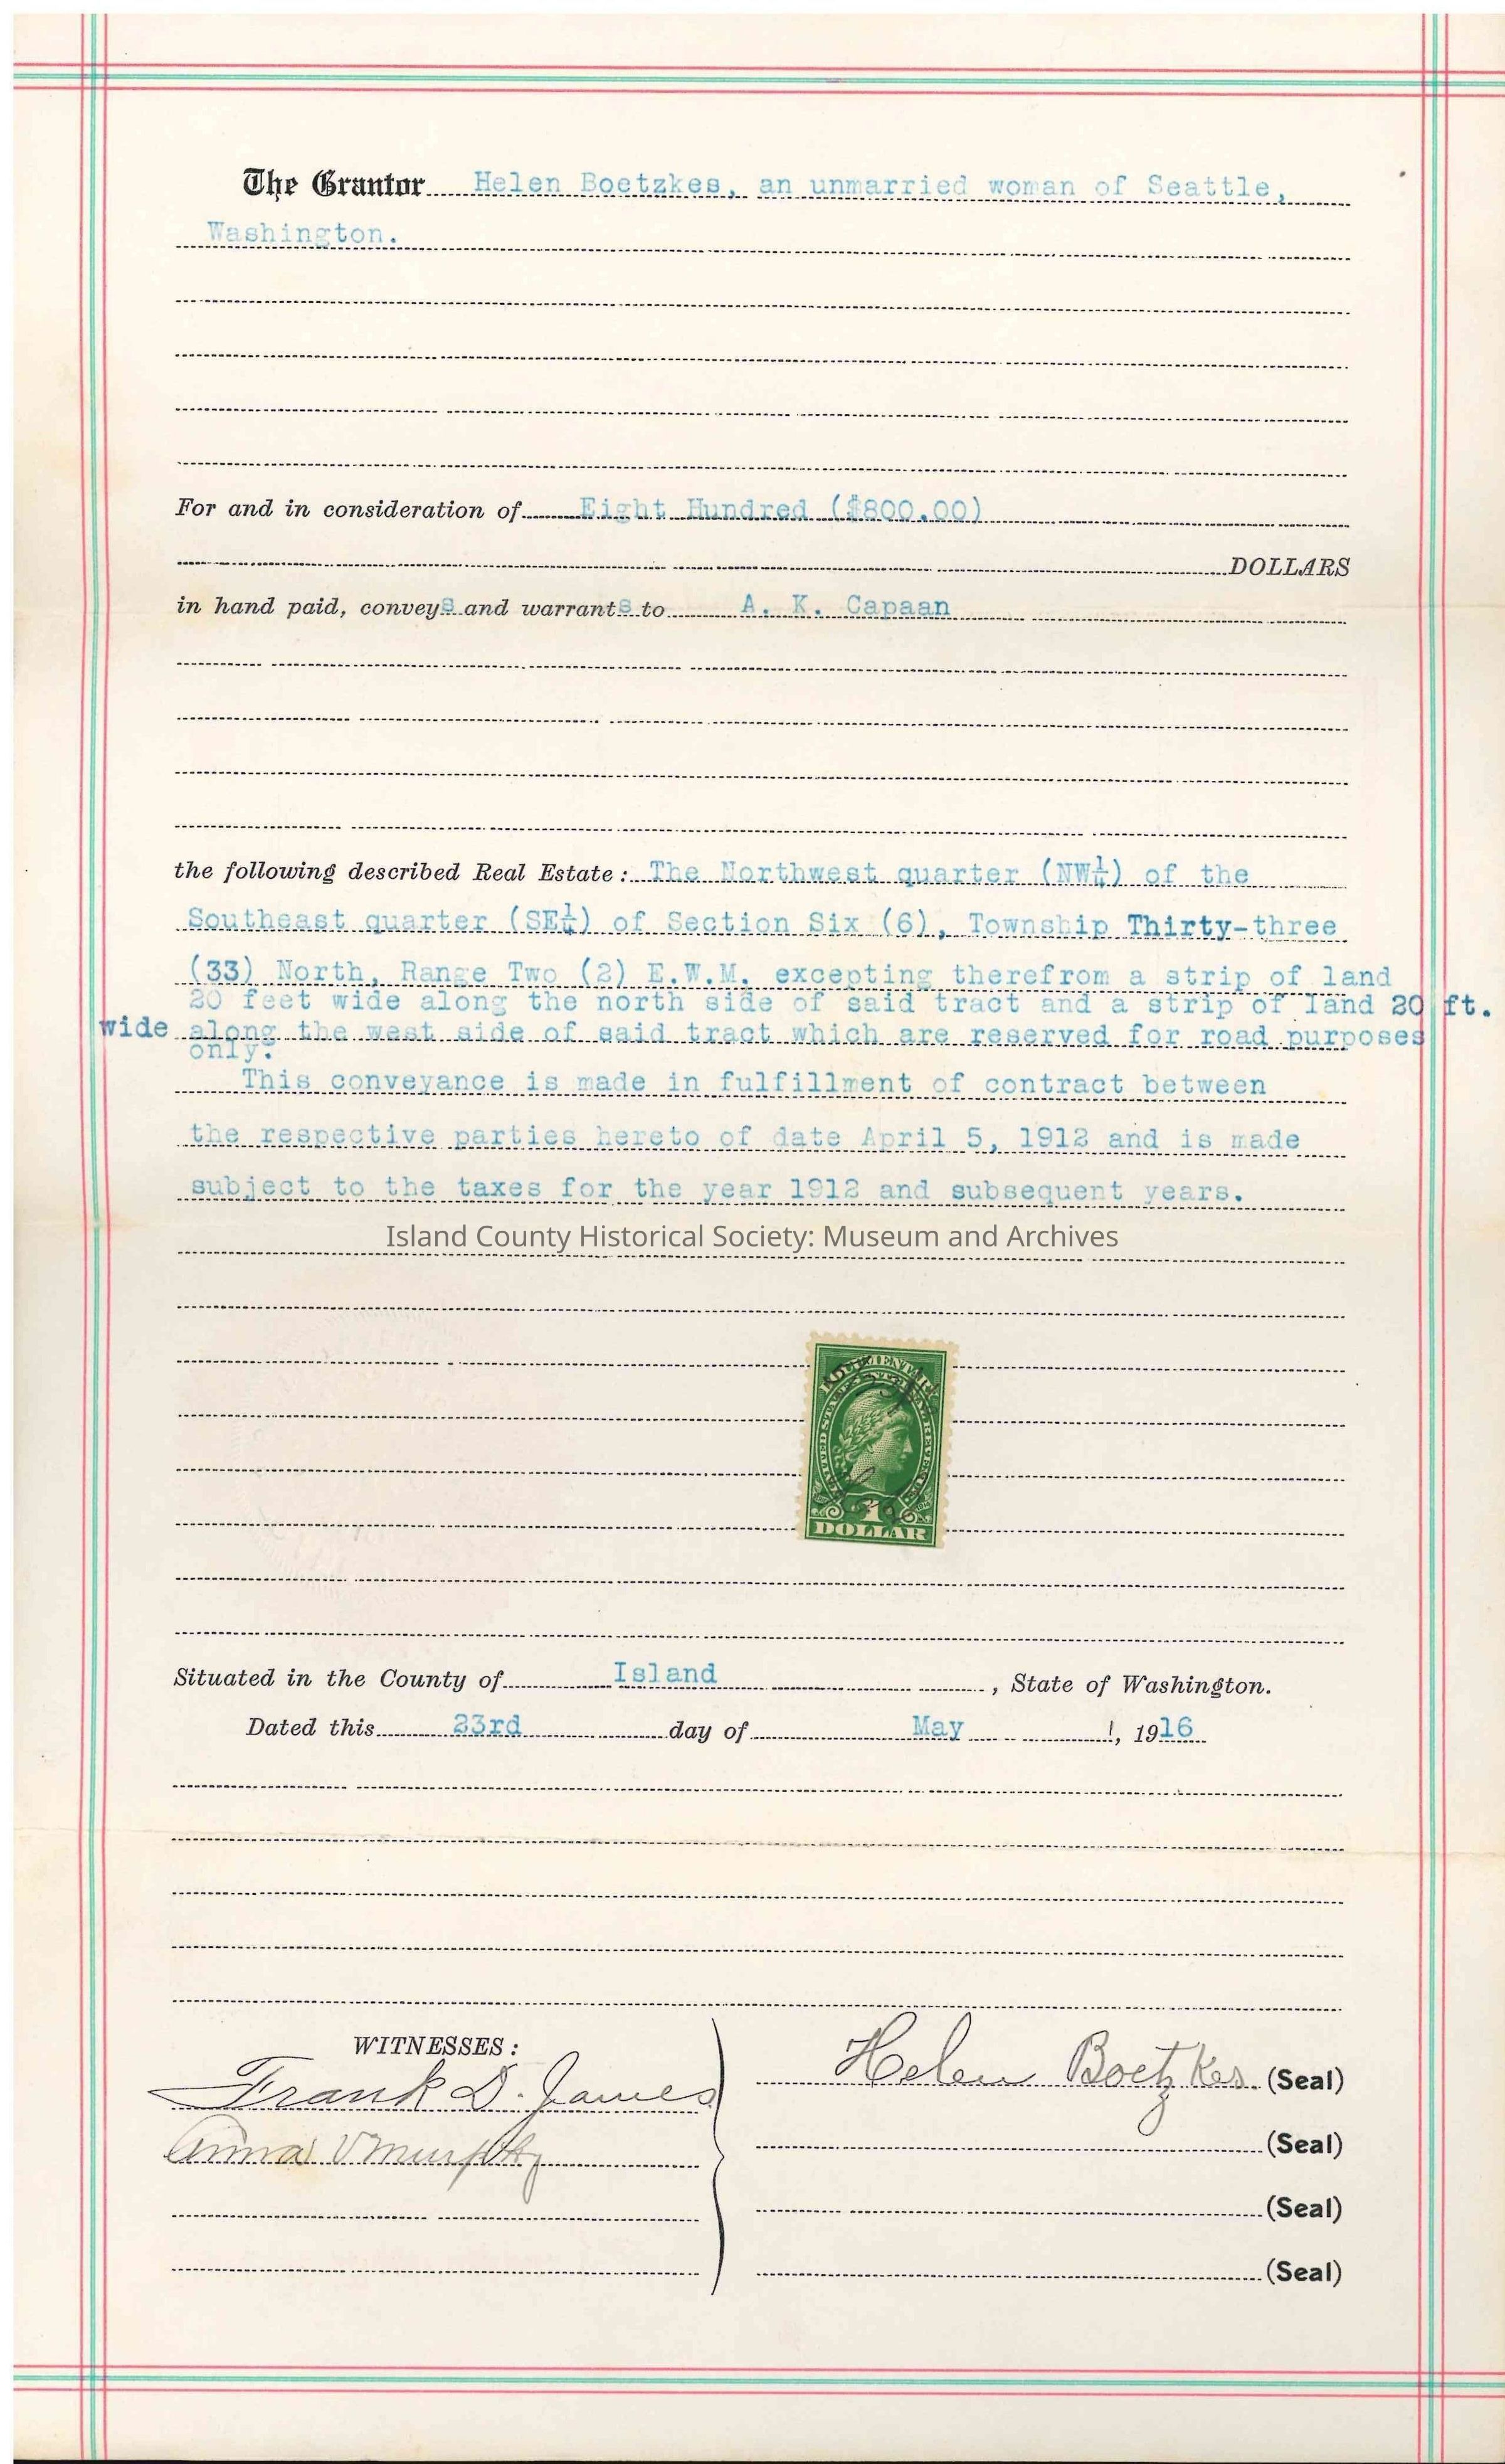 The Grantor Helen Boetzkes, an unmarried woman of Seattle,
Washington.
For and in consideration of Eight Hundred ($800.00)
DOLLARS
in hand paid, conveys and warrants to A. K. Capaan
the following described Real Estate: The Northwest quarter (NW¼) of the
Southeast quarter (SE¼) of Section Six (6), Township Thirty-three
(33) North, Range Two (2) E.W.M. excepting therefrom a strip of land
20 feet wide along the north side of said tract and a strip of land 20 ft.
wide along the west side of said tract which are reserved for road purposes
only.
This conveyance is made in fulfillment of contract between
the respective parties hereto of date April 5, 1912 and is made
subject to the taxes for the year 1912 and subsequent years.
Island County Historical Society: Museum and Archives
DOCUMENTARY
UNITED STATES INTERNAL REVENUE
1
DOLLAR
Situated in the County of Island, State of Washington.
Dated this 23rd day of May !, 1916
WITNESSES:
Frank D. James
Anna V Murphy
Helen Boetzkes. (Seal)
(Seal)
(Seal)
(Seal)